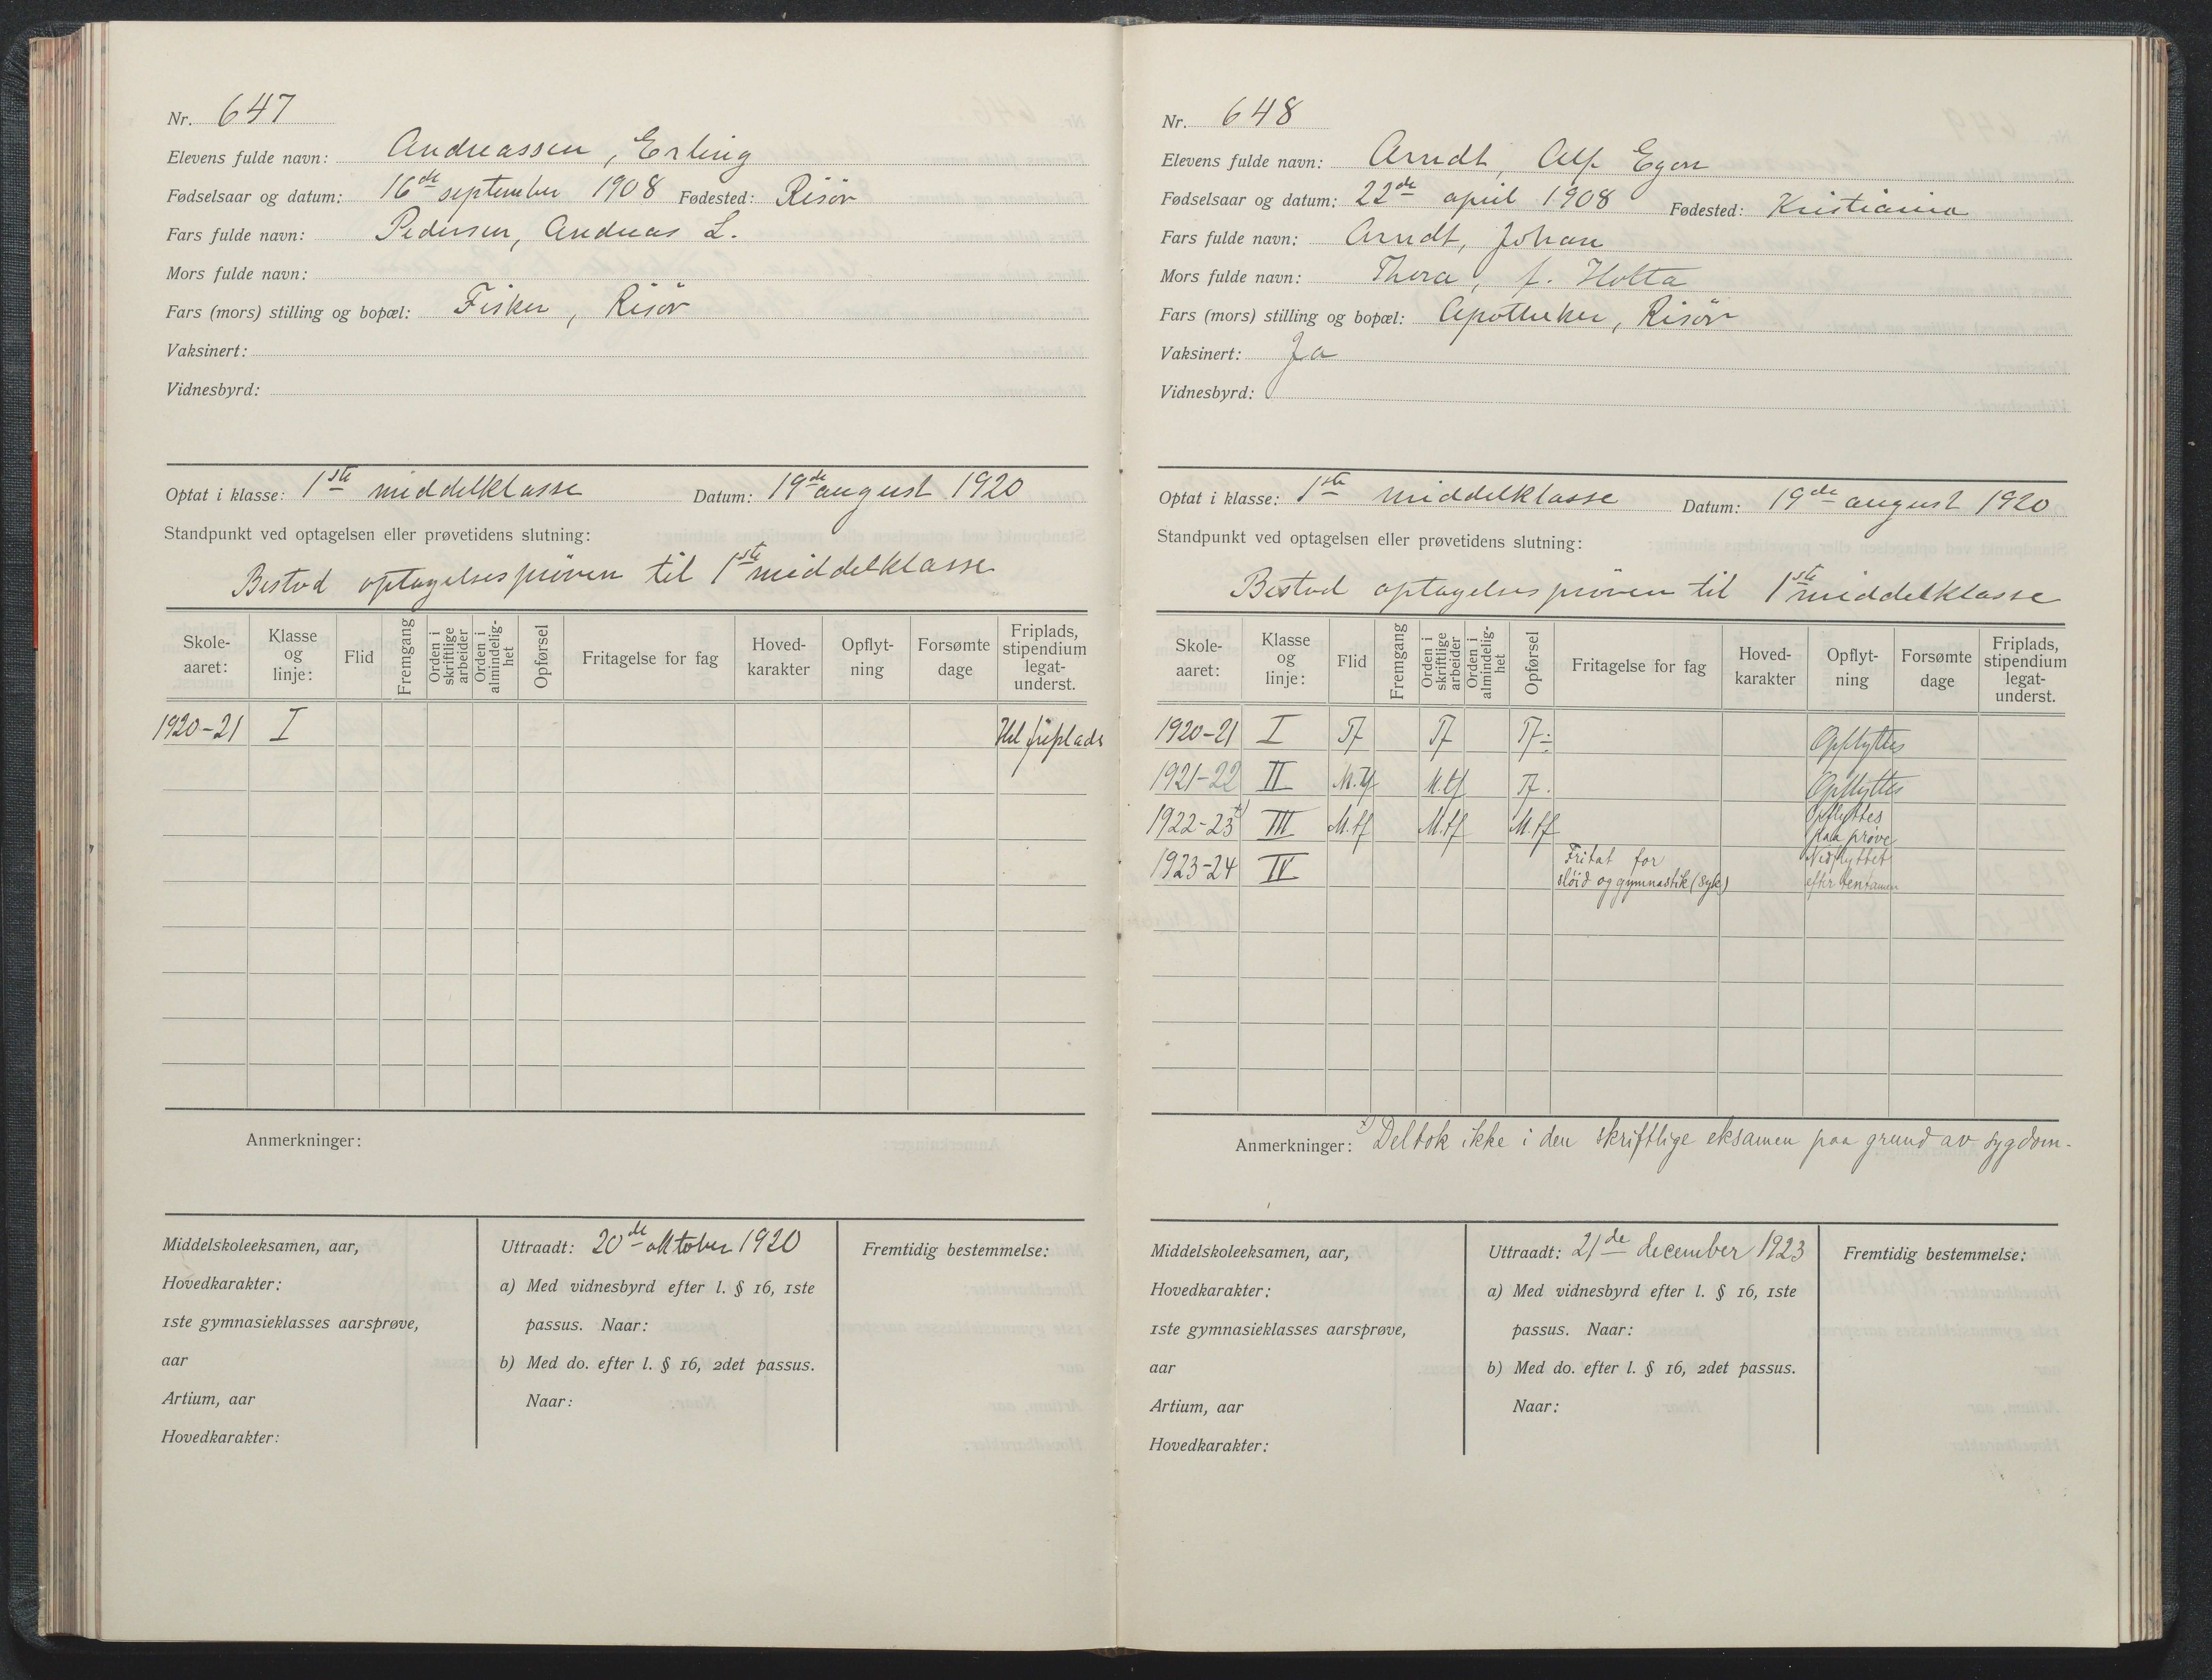 Nr. 647
Elevens fulde navn: Andreassen, Erling
Fødselsaar og datum: 16de september 1908 Fødested: Risör
Fars fulde navn: Pedersen, Andreas L.
Mors fulde navn:
Fars (mors) stilling og bopæl: Fisker, Risör
Vaksinert:
Vidnesbyrd:
Optat i klasse: 1ste middelklasse Datum: 19de august 1920
Standpunkt ved optagelsen eller prøvetidens slutning:
Bestod optagelsespröven til 1ste middelklasse
Skole-aaret: Klasse og linje: Flid Fremgang Orden i skriftlige arbeider Orden i almindelig-het Opførsel Fritagelse for fag Hoved-karakter Opflyt-ning Forsømte dage Friplads, stipendium legat-underst.
1920-21 I Hel friplads
Anmerkninger:
Middelskoleeksamen, aar,
Hovedkarakter:
1ste gymnasieklasses aarsprøve,
aar
Artium, aar
Hovedkarakter:
Uttraadt: 20de oktober 1920
a) Med vidnesbyrd efter l. § 16, 1ste
passus. Naar:
b) Med do. efter l. § 16, 2det passus.
Naar:
Fremtidig bestemmelse:
Nr. 648
Elevens fulde navn: Arndt, Alf Egon
Fødselsaar og datum: 22de april 1908 Fødested: Kristiania
Fars fulde navn: Arndt, Johan
Mors fulde navn: Thora, f. Holta
Fars (mors) stilling og bopæl: Apotheker, Risör
Vaksinert: Ja
Vidnesbyrd:
Optat i klasse: 1ste middelklasse Datum: 19de august 1920
Standpunkt ved optagelsen eller prøvetidens slutning:
Bestod optagelsespröven til 1ste middelklasse
Skole-aaret: Klasse og linje: Flid Fremgang Orden i skriftlige arbeider Orden i almindelig-het Opførsel Fritagelse for fag Hoved-karakter Opflyt-ning Forsømte dage Friplads, stipendium legat-underst.
1920-21 I Tf Tf Tf÷ Opflyttes
1921-22 II M.tf M.tf Tf. Opflyttes
1922-23 x) III M.tf M.tf M.tf Opflyttes paa prøve
1923-24 IV Fritat for slöid og gymnastik (syk) Nedflyttet efter tentamen
Anmerkninger: x) Deltok ikke i den skriftlige eksamen paa grund av sygdom.
Middelskoleeksamen, aar,
Hovedkarakter:
1ste gymnasieklasses aarsprøve,
aar
Artium, aar
Hovedkarakter:
Uttraadt: 21de december 1923
a) Med vidnesbyrd efter l. § 16, 1ste
passus. Naar:
b) Med do. efter l. § 16, 2det passus.
Naar:
Fremtidig bestemmelse: